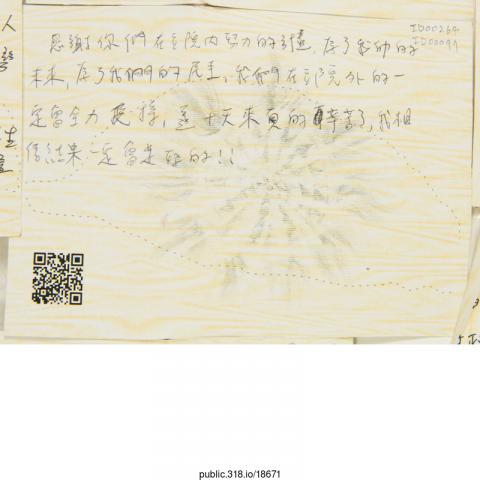 ID00264
ID00099
感謝你們在立院內努力的
未來,為了我們的民主,我們在立院外的一
定會全力
天來真的辛苦了,我相
信結果一定會是好的!!
人
生
public.318.io/18671